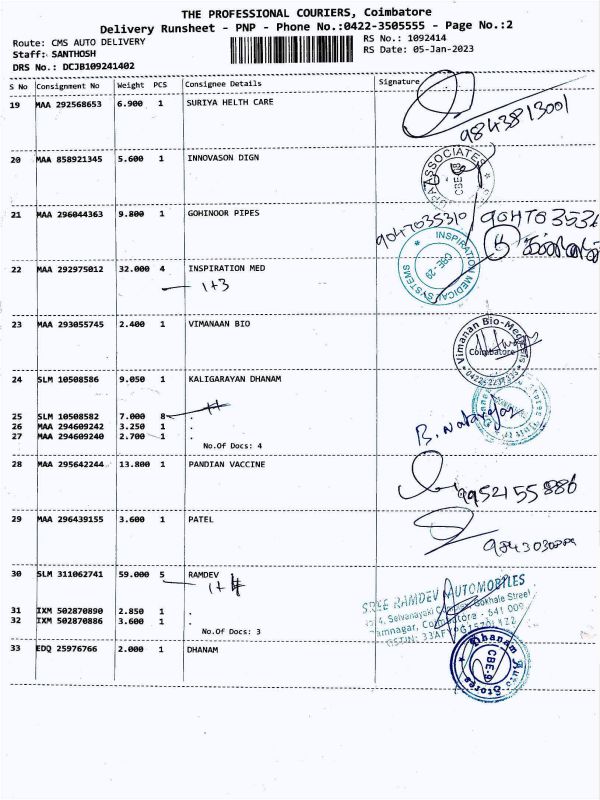 THE PROFESSIONAL COURIERS, Coimbatore
Delivery Runsheet - PNP - Phone No.:0422-3505555 - Page No.:2
Route: CMS AUTO DELIVERY
RS No.: 1092414
Staff: SANTHOSH
RS Date: 05-Jan-2023
DRS No.: DCJB109241402
S No Consignment No Weight PCS Consignee Details Signature
19 MAA 292568653 6.900 1 SURIYA HELTH CARE
9843813001
20 MAA 858921345 5.600 1 INNOVASON DIGN
ASSOCIATES
21 MAA 296044363 9.800 1 GOHINOOR PIPES
9047035310
INSPIRATION MEDICAL SYSTEMS
CBE-29
22 MAA 292975012 32.000 4 INSPIRATION MED
1+3
23 MAA 293055745 2.400 1 VIMANAAN BIO
Vimanan Bio-Medicals
Coimbatore
24 SLM 10508586 9.050 1 KALIGARAYAN DHANAM
25 SLM 10508582 7.000 8 .
26 MAA 294609242 3.250 1 .
27 MAA 294609240 2.700 1 .
B. Natarajan
No.Of Docs: 4
28 MAA 295642244 13.800 1 PANDIAN VACCINE
9952155886
29 MAA 296439155 3.600 1 PATEL
30 SLM 311062741 59.000 5 RAMDEV
SREE RAMDEV AUTOMOBILES
Gokhale Street
Ramnagar, Coimbatore - 641 009
31 IXM 502870890 2.850 1 .
32 IXM 502870886 3.600 1 .
No.Of Docs: 3
33 EDQ 25976766 2.000 1 DHANAM
Dhanam Auto Stores
CBE-9